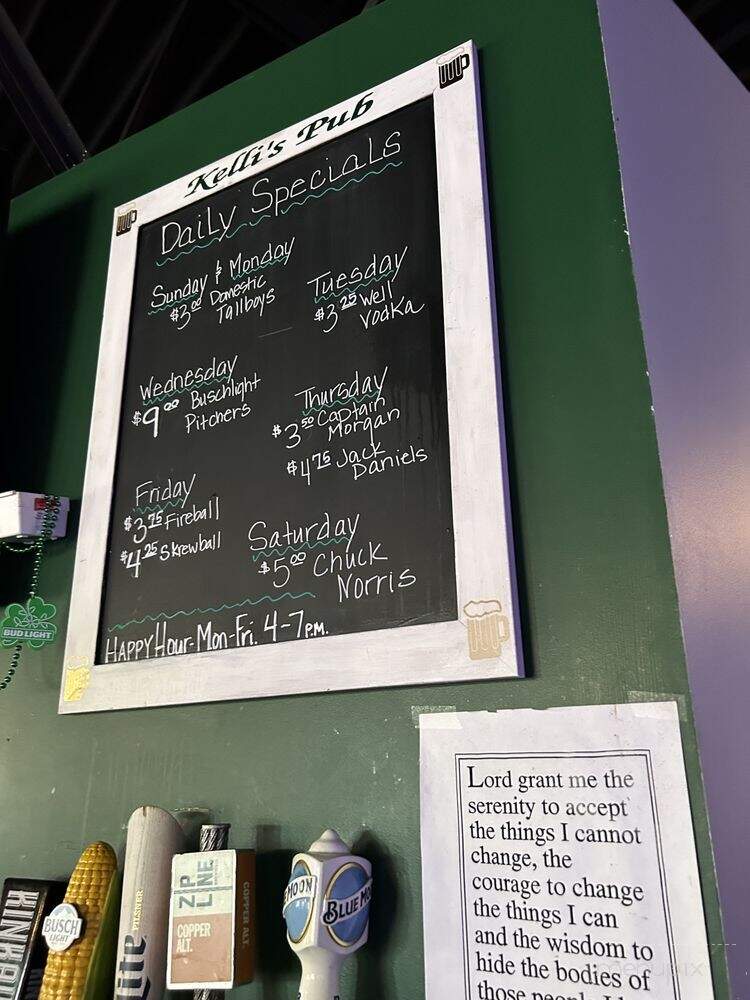 Kelli's Pub
Daily Specials
Sunday & Monday
$3.00 Domestic
Tallboys
Tuesday
$3.25 Well
Vodka
Wednesday
$9.00 Buschlight
Pitchers
Thursday
$3.50 Captain
Morgan
$4.75 Jack
Daniels
Friday
$3.75 Fireball
$4.25 Skrewball
Saturday
$5.00 Chuck
Norris
HAPPY Hour-Mon-Fri. 4-7 P.M.
BUD LIGHT
Lord grant me the
serenity to accept
the things I cannot
change, the
courage to change
the things I can
and the wisdom to
hide the bodies of
those
BUSCH
LIGHT
Lite
PILSNER
ZIP
LINE
COPPER
ALT.
COPPER ALT.
MOON
BLUE MO